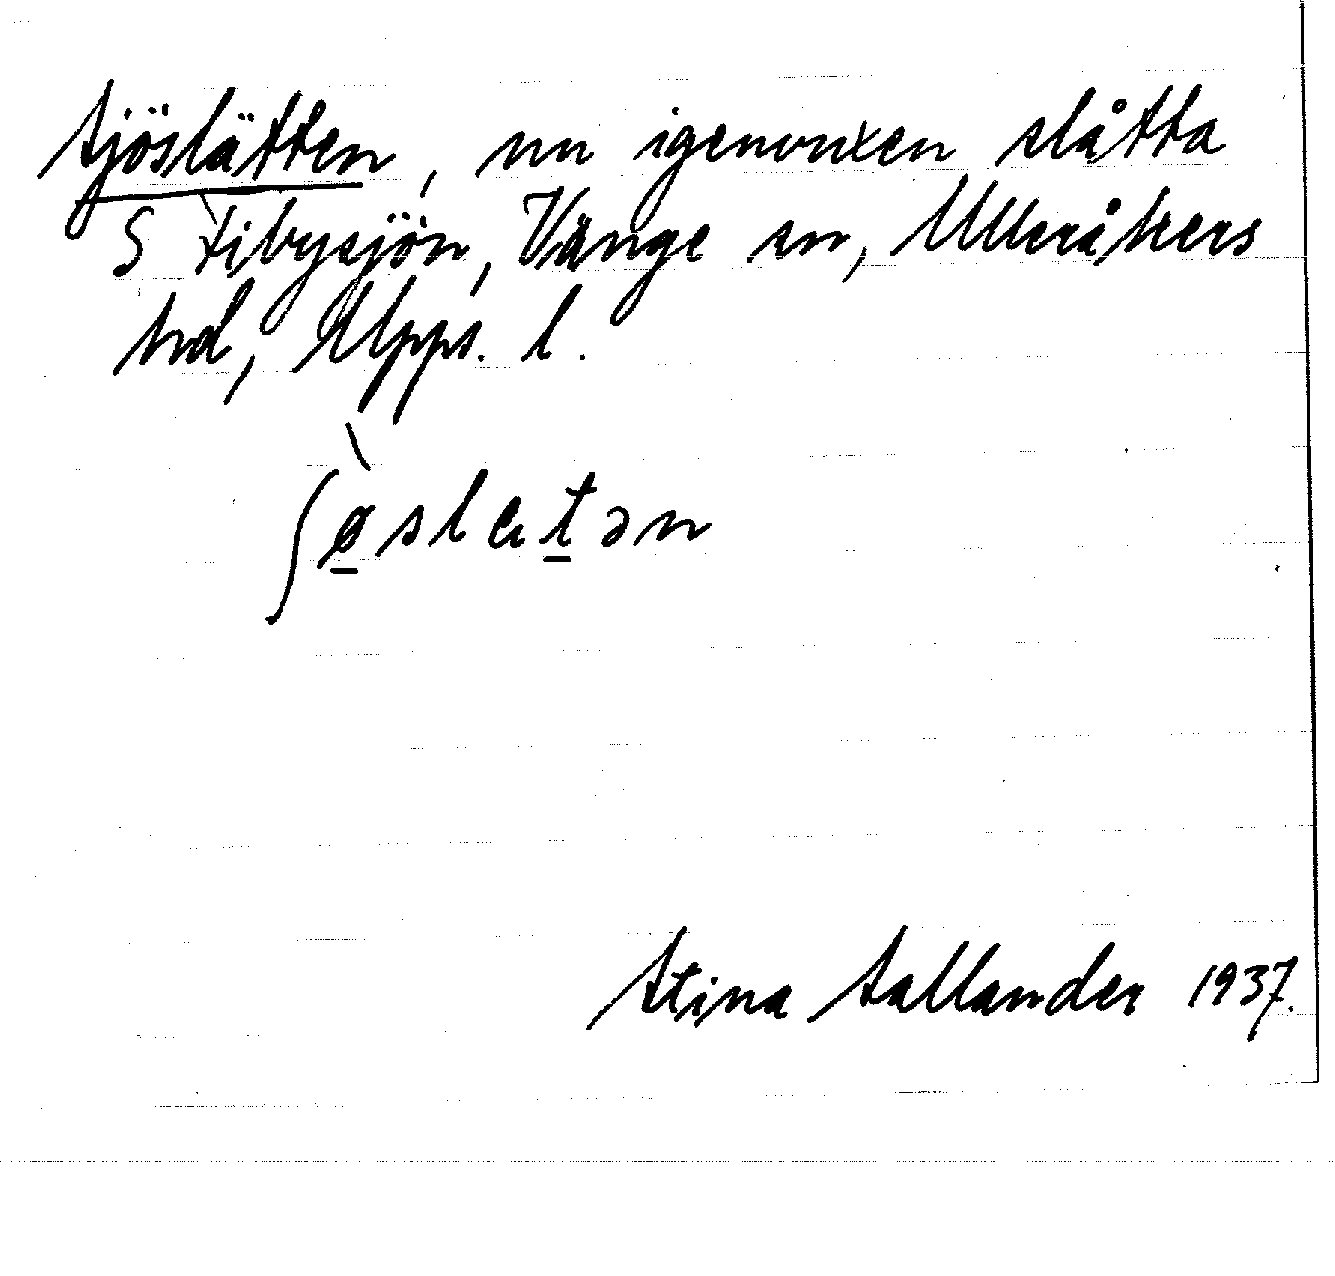 Sjöslätten, nu igenvuxen slåtta
S Tibysjön, Vänge sn, Ulleråkers
hd, Upps. l.
Stina Sallander 1937.